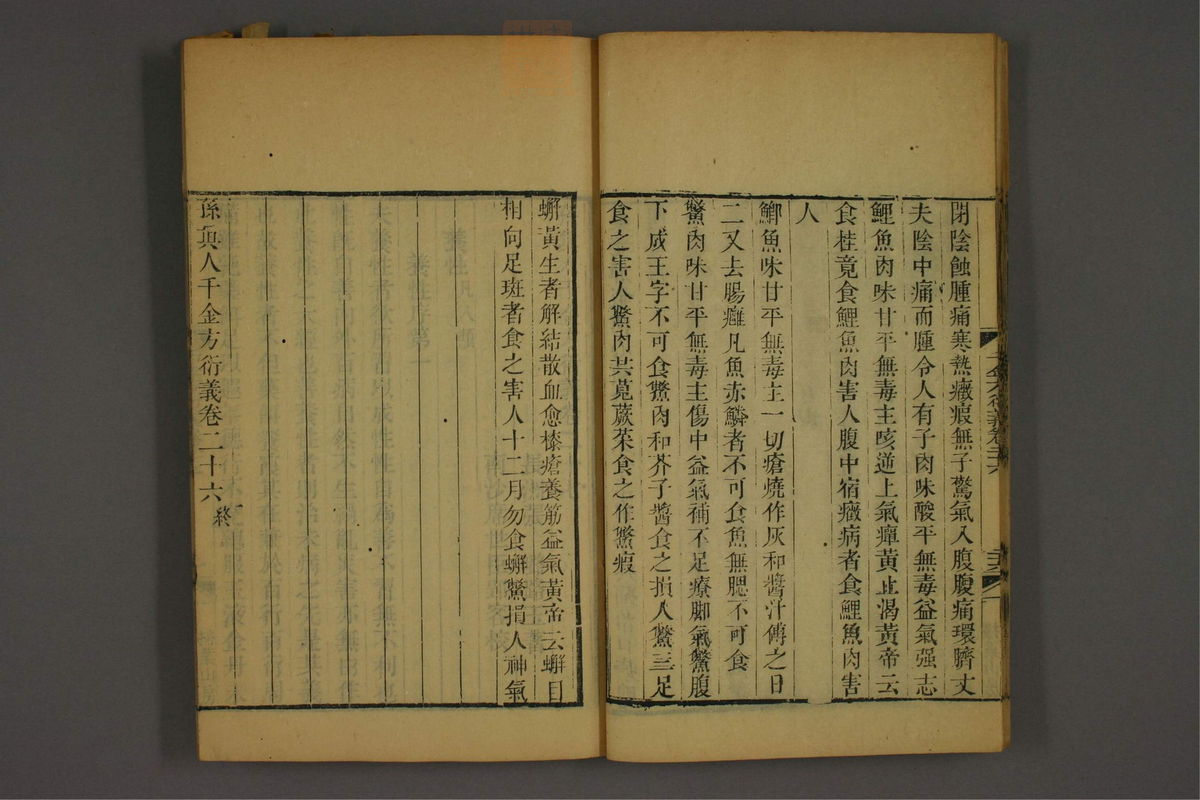 閉陰蝕腫痛寒熱癥瘕無子驚氣入腹腹痛環臍丈
夫陰中痛而腫令人有子肉味酸平無毒益氣强志
鯉魚肉味甘平無毒主咳逆上氣癉黃止渴黃帝云
食桂竟食鯉魚肉害人腹中宿癥病者食鯉魚肉害
人
鯽魚味甘平無毒主一切瘡燒作灰和醬汁傅之日
二又去腸癰凡魚赤鱗者不可食魚無腮不可食
鱉肉味甘平無毒主傷中益氣補不足療脚氣鱉腹
下成王字不可食鱉肉和芥子醬食之損人鱉三足
食之害人鱉肉共莧蕨菜食之作鱉瘕
蠏黃生者解結散血愈榛瘡養筋益氣黃帝云蠏目
相向足斑者食之害人十二月勿食蠏鱉損人神氣
孫眞人千金方衍義卷二十六終